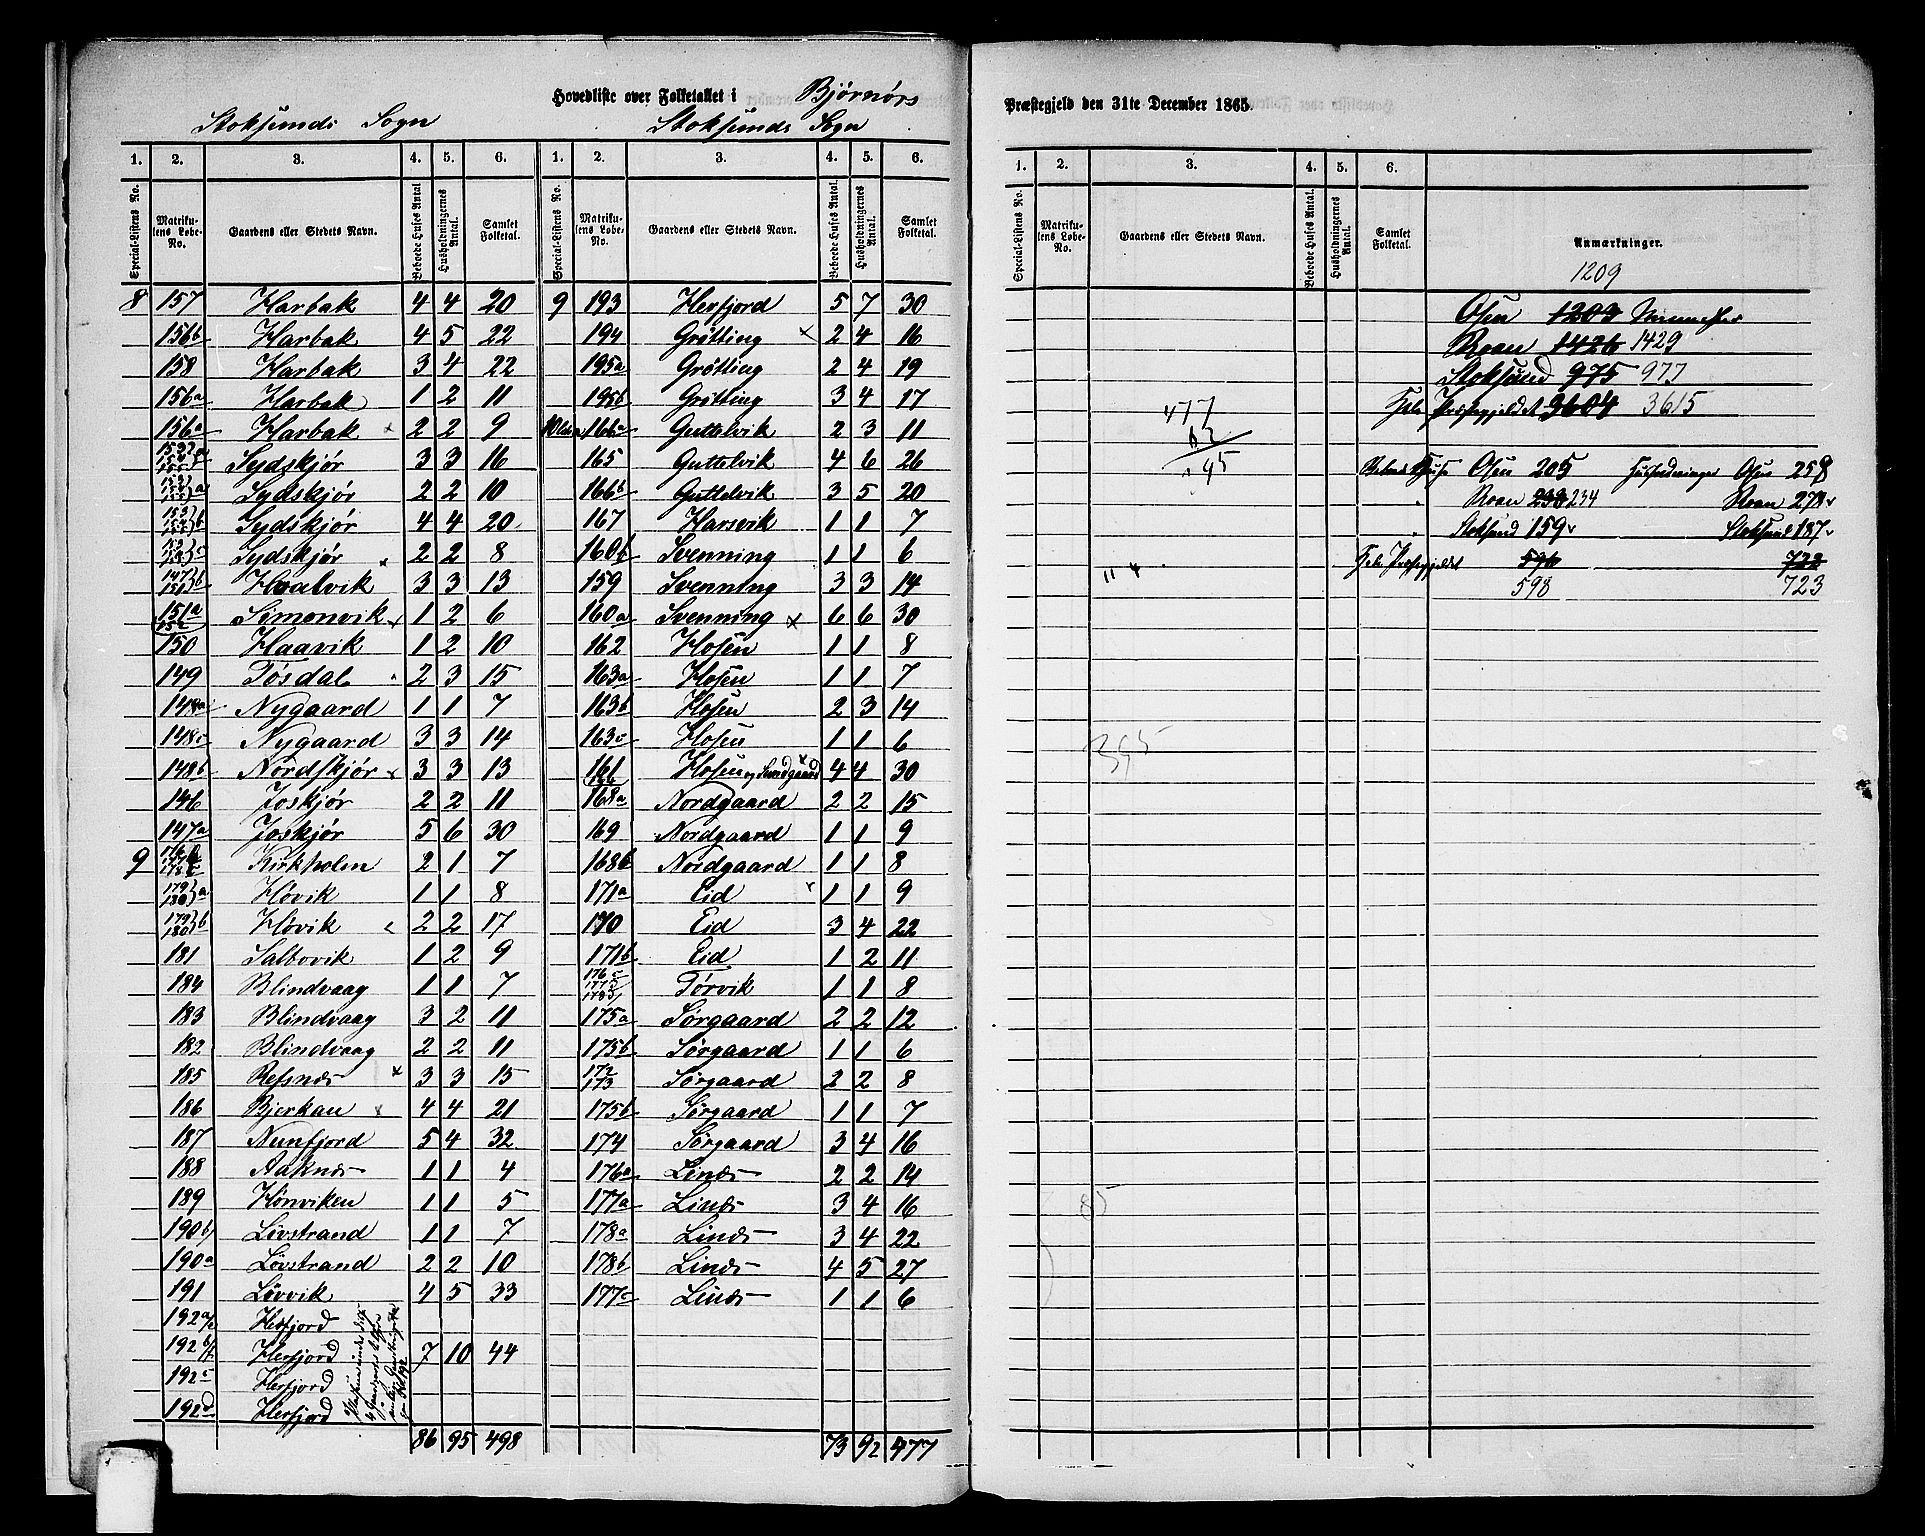 Hovedliste over Folketallet i Bjørnørs
Stoksunds Sogn
Stoksunds Sogn
1. 2. 3. 4. 5. 6.
Special-Listens No. Matrikulens Løbe-No. Gaardens eller Stedets Navn. Beboede Huses Antal. Husholdningernes Antal. Samlet Folketal.
8 157 Harbak 4 4 20
156b Harbak 4 5 22
158 Harbak 3 4 22
156a Harbak 1 2 11
156a Harbak 2 2 9
Sydskjør 3 3 16
Sydskjør 2 2 10
Sydskjør 4 4 20
Sydskjør 2 2 8
147 151 b Hoalvik 3 3 13
151a 152 Simonvik 1 2 6
150 Haavik 1 2 10
149 Tøsdal 2 3 15
148a Nygaard 1 1 7
148c Nygaard 3 3 14
148b Nordskjør 3 3 13
146 Joskjør 2 2 11
147a Joskjør 5 6 30
9 Kirkholm 2 1 7
179 180 a Høvik 1 1 8
179 180 b Høvik 2 2 17
181 Salbovik 1 2 9
184 Blindvaag 1 1 7
183 Blindvaag 3 2 11
182 Blindvaag 2 2 11
185 Refsnæs x 3 3 15
186 Bjerkan x 4 4 21
187 Nunfjord 5 4 32
188 Aaknæs 1 1 4
189 Hønviken 1 1 5
190b Løvstrand 1 1 7
190a Løvstrand 2 2 10
191 Løvvik 4 5 33
192a Herfjord
192b Herfjord 7 10 44
192c Herfjord
192d Herfjord
86 95 498
1. 2. 3. 4. 5. 6.
Special-Listens No. Matrikulens Løbe-No. Gaardens eller Stedets Navn. Beboede Huses Antal. Husholdningernes Antal. Samlet Folketal.
9 193 Herfjord 5 7 30
194 Grøtting x 2 4 16
195a Grøtting 2 4 19
195b Grøtting 3 4 17
166a Guttelvik 2 3 11
165 Guttelvik 4 6 26
166b Guttelvik 3 5 20
167 Harsvik 1 1 7
160b Svenning 1 1 6
159 Svenning 3 3 14
160a Svenning x 6 6 30
162 Hosen 1 1 8
163a Hosen 1 1 7
163b Hosen 2 3 14
163c Hosen 1 1 6
161 Hosen og Sundgaard x 4 4 30
168a Nordgaard 2 2 15
169 Nordgaard 1 1 9
168b Nordgaard 1 1 8
171a Eid 1 1 9
170 Eid 3 4 22
171b Eid 1 2 11
Tørvik 1 1 8
175a Sørgaard 2 2 12
175b Sørgaard 1 1 6
172 173 Sørgaard 2 2 8
175b Sørgaard 1 1 7
174 Sørgaard 3 4 16
176a Linæs 2 2 14
177a Linæs 3 4 16
178a Linæs 3 4 22
178b Linæs 4 5 27
177c Linæs 1 1 6
73 92 477
Præstegjeld den 31te December 1865.
1. 2. 3. 4. 5. 6.
Special-Listens No. Matrikulens Løbe-No. Gaardens eller Stedets Navn. Beboede Huses Antal. Husholdningernes Antal. Samlet Folketal. Anmærkninger.
1209
Osen 1203 Mennesker
Roan 1426 1429
Stoksund 975 977
Hele Præstegjeldet 3604 3615
477
Beboede Huse Osen 205 Husholdninger Osen 258
" Roan 233 234 Roan 278
" Stoksund 159 Stoksund 187
Hele Præstegjeldet 596 722
598 723
395
85